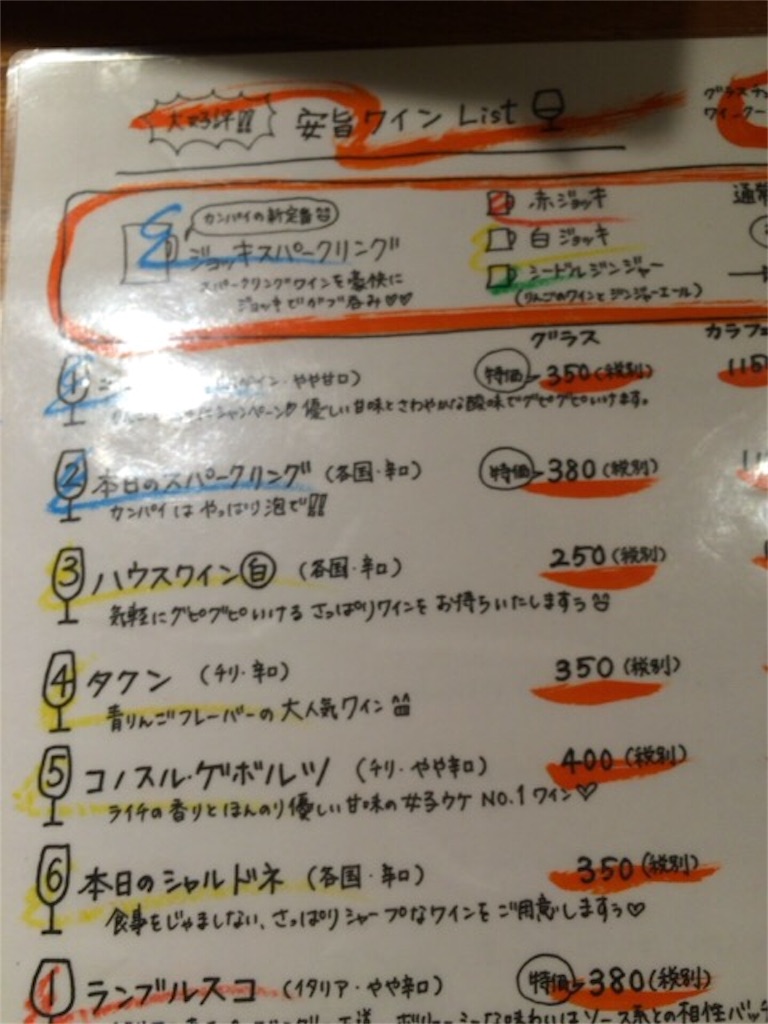 大好評!! 安旨ワイン List
カンパイの新定番
ジョッキスパークリング
スパークリングワインを豪快に
ジョッキでガブ呑み♡♡
赤ジョッキ
白ジョッキ
シードルジンジャー
(りんごのワインとジンジャーエール)
通常
グラス カラフェ
1 やや甘口) 特価 350(税別)
優しい甘味とさわやかな酸味でグビグビいけます。
2 本日のスパークリング (各国・辛口) 特価 380(税別)
カンパイはやっぱり泡で!!
3 ハウスワイン白 (各国・辛口) 250(税別)
気軽にグビグビいける さっぱりワインを お持ちいたしますぅ
4 タクン (チリ・辛口) 350(税別)
青りんごフレーバーの大人気ワイン
5 コノスル・ゲボルツ (チリ・やや辛口) 400(税別)
ライチの香りとほんのり優しい甘味の女子ウケ NO.1ワイン♡
6 本日のシャルドネ (各国・辛口) 350(税別)
食事をじゃましない、さっぱりシャープなワインをご用意しますぅ♡
1 ランブルスコ (イタリア・やや辛口) 特価 380(税別)
味わいはソース系との相性バッチ